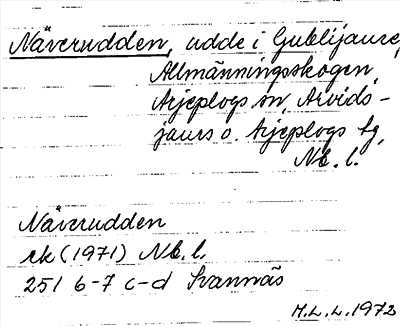 Näverudden, udde i Gublijaure,
Allmänningsskogen,
Arjeplogs sn, Arvids-
jaurs o. Arjeplogs tg,
Nb. l.
Näverudden
ek (1971) Nb. l.
25I 6-7 c-d Svannäs
M.L.L. 1973